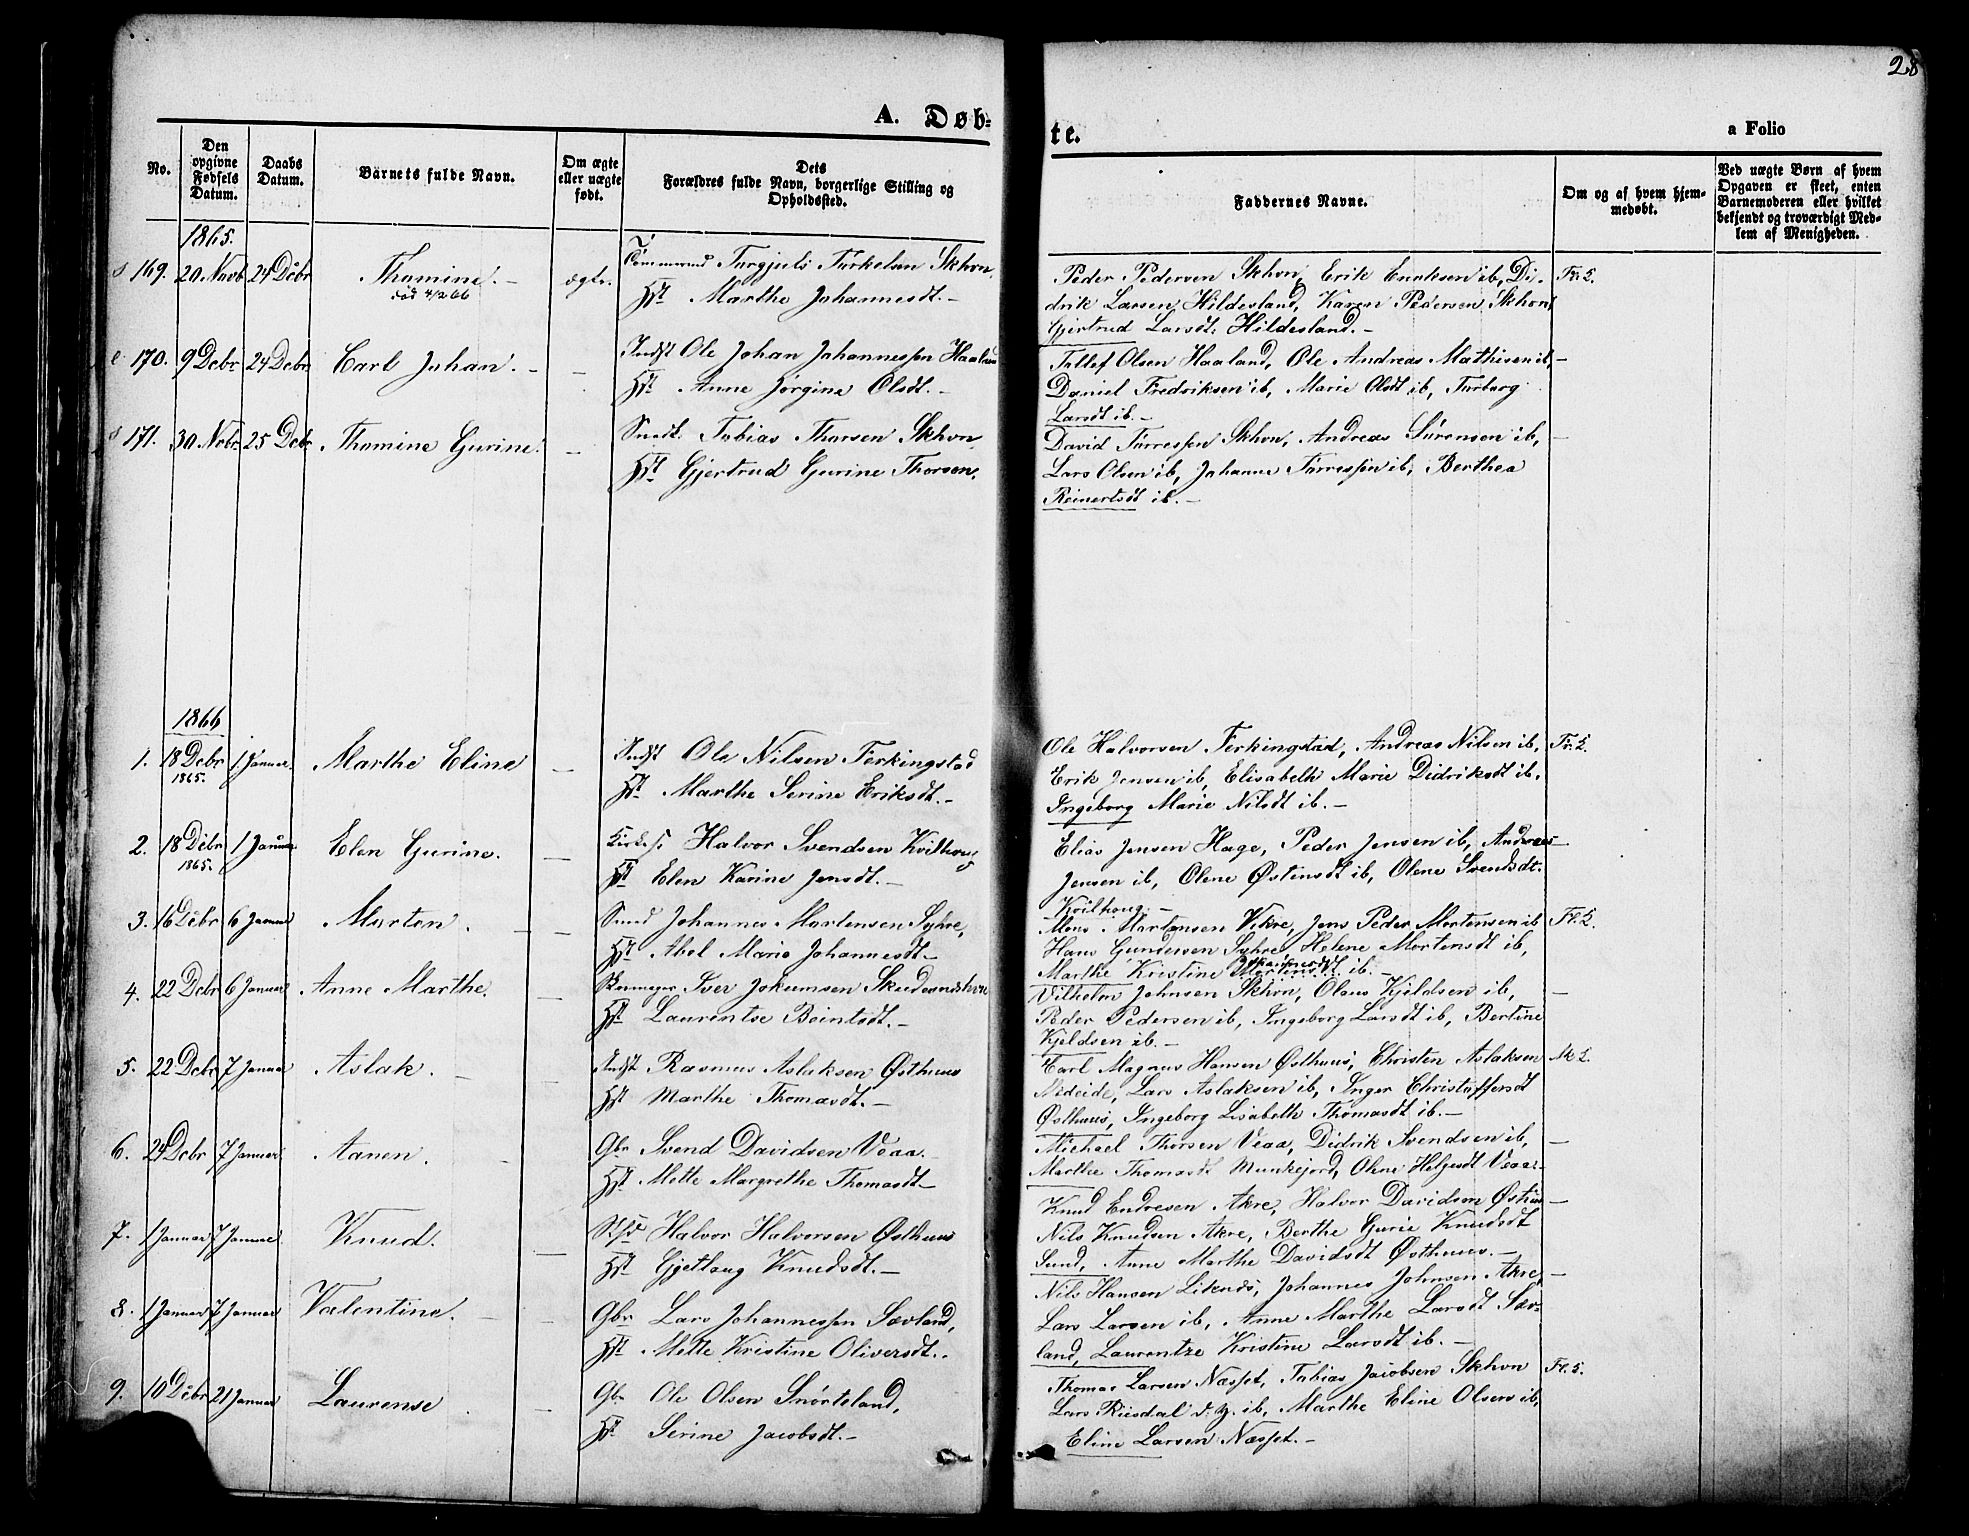 28
A. Døb-
te.
a Folio
No.
Den opgivne Fødsels Datum.
Daabs Datum.
Barnets fulde Navn.
Om ægte eller uægte født.
Dets Forældres fulde Navn, borgerlige Stilling og Opholdssted.
Faddernes Navne.
Om og af hvem hjem-medøbt.
Ved uægte Børn af hvem Opgaven er skeet, enten Barnemoderen eller hvilket bekjendt og troværdigt Med-lem af Menigheden.
1865.
169. 20. Novb 24 Debr Thomine. - ægte. Tømmermd Torgjuls Törkelsen Skhvn.
død 4/2 66
Hst Marthe Johannesdt. -
Peder Pedersen Skhvn, Erik Eriksen ib, Di-
drik Larsen Hildesland, Karen Pedersen Skhvn,
Gjertrud Larsdt: Hildesland. -
170. 9 Debr 24 Debr Carl Johan. - - Indst Ole Johan Johannessen Haaland
Hst Anne Jorgine Olsdt. -
Tollef Olsen Haaland, Ole Andreas Mathisen ib, -
Daniel Fredriksen ib, Marie Olsdt ib, Torborg
Larsdt ib. -
171. 30 Nobr. 25 Debr Thomine Gurine. - Smedt. Tobias Thorsen Skhvn
Hst Gjertrud Gurine Thorsen.
David Törressen Skhvn, Andreas Sörensen ib, -
Lars Olsen ib, Johanne Törressen ib, Berthea
Reinertsdt ib. -
1866
1. 18 Debr 1865. 1 Januar. Marthe Eline - Indst Ole Nilsen Ferkingstad
Hst Marthe Serine Eriksdt. -
Ole Halvorsen Ferkingstad, Andreas Nilsen ib,
Erik Jensen ib, Elisabeth Marie Didriksdt ib.
Ingeborg Marie Nilsdt ib. -
2. 18 Debr 1865. 1 Januar Elen Gurine. - Halvor Svendsen Kvilhoug
Hst Elen Karine Jensdt. -
Elias Jensen Hage, Peder Jensen ib, Andreas -
Jensen ib, Olene Østensdt ib, Olene Svendsdt.
Kvilhoug. -
3. 16 Debr 6 Januar Morten. - Smed Johannes Mortensen Syhre,
Hst Abel Marie Johannesdt -
Mons Mortensen Vikre, Jens Peder Mortensen ib
Hans Gundersen Syhre Helene Mortensdt ib,
Marthe Kristine Mortensdt. ib. -
4. 22 Debr 6 Januar Anne Marthe. - Iver Jokumsen Skudesneshvn
Hst Laurentse Beintsdt. -
Vilhelm Johnsen Skhvn, Olaus Kjeldsen ib, -
Peder Pedersen ib, Ingeborg Larsdt ib, Bertine
Kjeldsen ib. -
5. 22 Debr 7 Januar Aslak. - Indst Rasmus Aslaksen Østhuus
Hst Marthe Thomasdt. -
Carl Magnus Hansen Østhuus, Christen Aslaksen
Medeide, Lars Aslaksen ib, Inger Christoffersdt
Østhuus, Ingeborg Lisabeth Thomasdt ib. -
6. 24 Debr 7 Januar Aanen. - Gbr Svend Davidsen Veaa. -
Hst Mette Margrethe Thomasdt -
Michael Thorsen Veaa, Didrik Svendsen ib, -
Marthe Thomasdt Munkejord, Olene Helgesdt Veaa -
7. 1 Januar 7 Januar Knud. - Halvor Halvorsen Østhuus
Hst Gjetlaug Knudsdt. -
Knud Endresen Akre, Halvor Davidsen Østhus -
Nils Knudsen Akre, Berthe Gurie Knudsdt
Sund, Anne Marthe Davidsdt Østhuus. -
8. 1 Januar 7 Januar Valentine. - Gbr Lars Johannessen Sævland,
Hst Mette Kristine Oliversdt. -
Nils Hansen Liknes, Johannes Johnsen Akre, -
Lars Larsen ib, Anne Marthe Larsdt Sæv-
land, Laurentze Kristine Larsdt ib. -
9. 10 Debr 21 Januar Laurense - Gbr Ole Olsen Snörteland,
Hst Serine Jacobsdt. -
Thomas Larsen Næsset, Tobias Jacobsen Skhvn
Lars Riisdal d. y. ib, Marthe Eline Olsen ib,
Eline Larsen Næsset. -